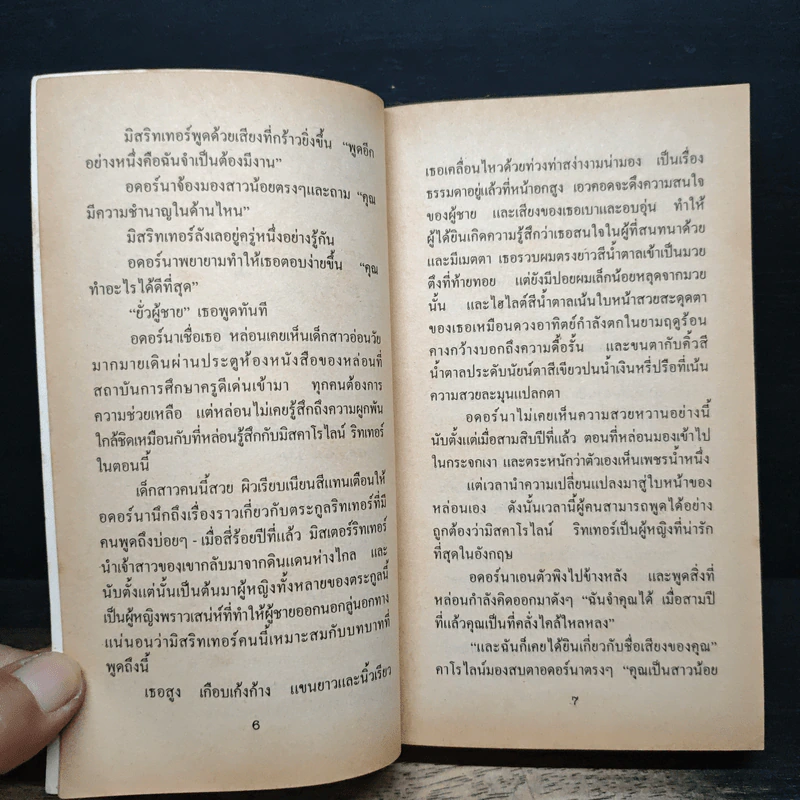 มิสริทเทอร์พูดด้วยเสียงที่กร้าวยิ่งขึ้น “พูดอีก
อย่างหนึ่งคือฉันจำเป็นต้องมีงาน”
อดอร์นาจ้องมองสาวน้อยตรงๆและถาม “คุณ
มีความชำนาญในด้านไหน”
มิสริทเทอร์ลังเลอยู่ครู่หนึ่งอย่างรู้กัน
อดอร์นาพยายามทำให้เธอตอบง่ายขึ้น “คุณ
ทำอะไรได้ดีที่สุด”
“ยั่วผู้ชาย” เธอพูดทันที
อดอร์นาเชื่อเธอ หล่อนเคยเห็นเด็กสาวอ่อนวัย
มากมายเดินผ่านประตูห้องหนังสือของหล่อนที่
สถาบันการศึกษาครูดีเด่นเข้ามา ทุกคนต้องการ
ความช่วยเหลือ แต่หล่อนไม่เคยรู้สึกถึงความผูกพัน
ใกล้ชิดเหมือนกับที่หล่อนรู้สึกกับมิสคาโรไลน์ ริทเทอร์
ในตอนนี้
เด็กสาวคนนี้สวย ผิวเรียบเนียนสีแทนเตือนให้
อดอร์นานึกถึงเรื่องราวเกี่ยวกับตระกูลริทเทอร์ที่มี
คนพูดถึงบ่อยๆ - เมื่อสี่ร้อยปีที่แล้ว มิสเตอร์ริทเทอร์
นำเจ้าสาวของเขากลับมาจากดินแดนห่างไกล และ
นับตั้งแต่นั้นเป็นต้นมาผู้หญิงทั้งหลายของตระกูลนี้
เป็นผู้หญิงพราวเสน่ห์ที่ทำให้ผู้ชายออกนอกลู่นอกทาง
แน่นอนว่ามิสริทเทอร์คนนี้เหมาะสมกับบทบาทที่
พูดถึงนี้
เธอสูง เกือบเก้งก้าง แขนยาวและนิ้วเรียว
6
เธอเคลื่อนไหวด้วยท่วงท่าสง่างามน่ามอง เป็นเรื่อง
ธรรมดาอยู่แล้วที่หน้าอกสูง เอวคอดจะดึงความสนใจ
ของผู้ชาย และเสียงของเธอเบาและอบอุ่น ทำให้
ผู้ได้ยินเกิดความรู้สึกว่าเธอสนใจในผู้ที่สนทนาด้วย
และมีเมตตา เธอรวบผมตรงยาวสีน้ำตาลเข้าเป็นมวย
ตึงที่ท้ายทอย แต่ยังมีปอยผมเล็กน้อยหลุดจากมวย
นั้น และไฮไลต์สีน้ำตาลเน้นใบหน้าสวยสะดุดตา
ของเธอเหมือนดวงอาทิตย์กำลังตกในยามฤดูร้อน
คางกว้างบอกถึงความดื้อรั้น และขนตากับคิ้วสี
น้ำตาลประดับนัยน์ตาสีเขียวปนน้ำเงินหรี่ปรือที่เน้น
ความสวยละมุนแปลกตา
อดอร์นาไม่เคยเห็นความสวยหวานอย่างนี้
นับตั้งแต่เมื่อสามสิบปีที่แล้ว ตอนที่หล่อนมองเข้าไป
ในกระจกเงา และตระหนักว่าตัวเองเห็นเพชรน้ำหนึ่ง
แต่เวลานำความเปลี่ยนแปลงมาสู่ใบหน้าของ
หล่อนเอง ดังนั้นเวลานี้ผู้คนสามารถพูดได้อย่าง
ถูกต้องว่ามิสคาโรไลน์ ริทเทอร์เป็นผู้หญิงที่น่ารัก
ที่สุดในอังกฤษ
อดอร์นาเอนตัวพิงไปข้างหลัง และพูดสิ่งที่
หล่อนกำลังคิดออกมาดังๆ “ฉันจำคุณได้ เมื่อสามปี
ที่แล้วคุณเป็นที่คลั่งไคล้ใหลหลง”
“และฉันก็เคยได้ยินเกี่ยวกับชื่อเสียงของคุณ”
คาโรไลน์มองสบตาอดอร์นาตรงๆ “คุณเป็นสาวน้อย
7